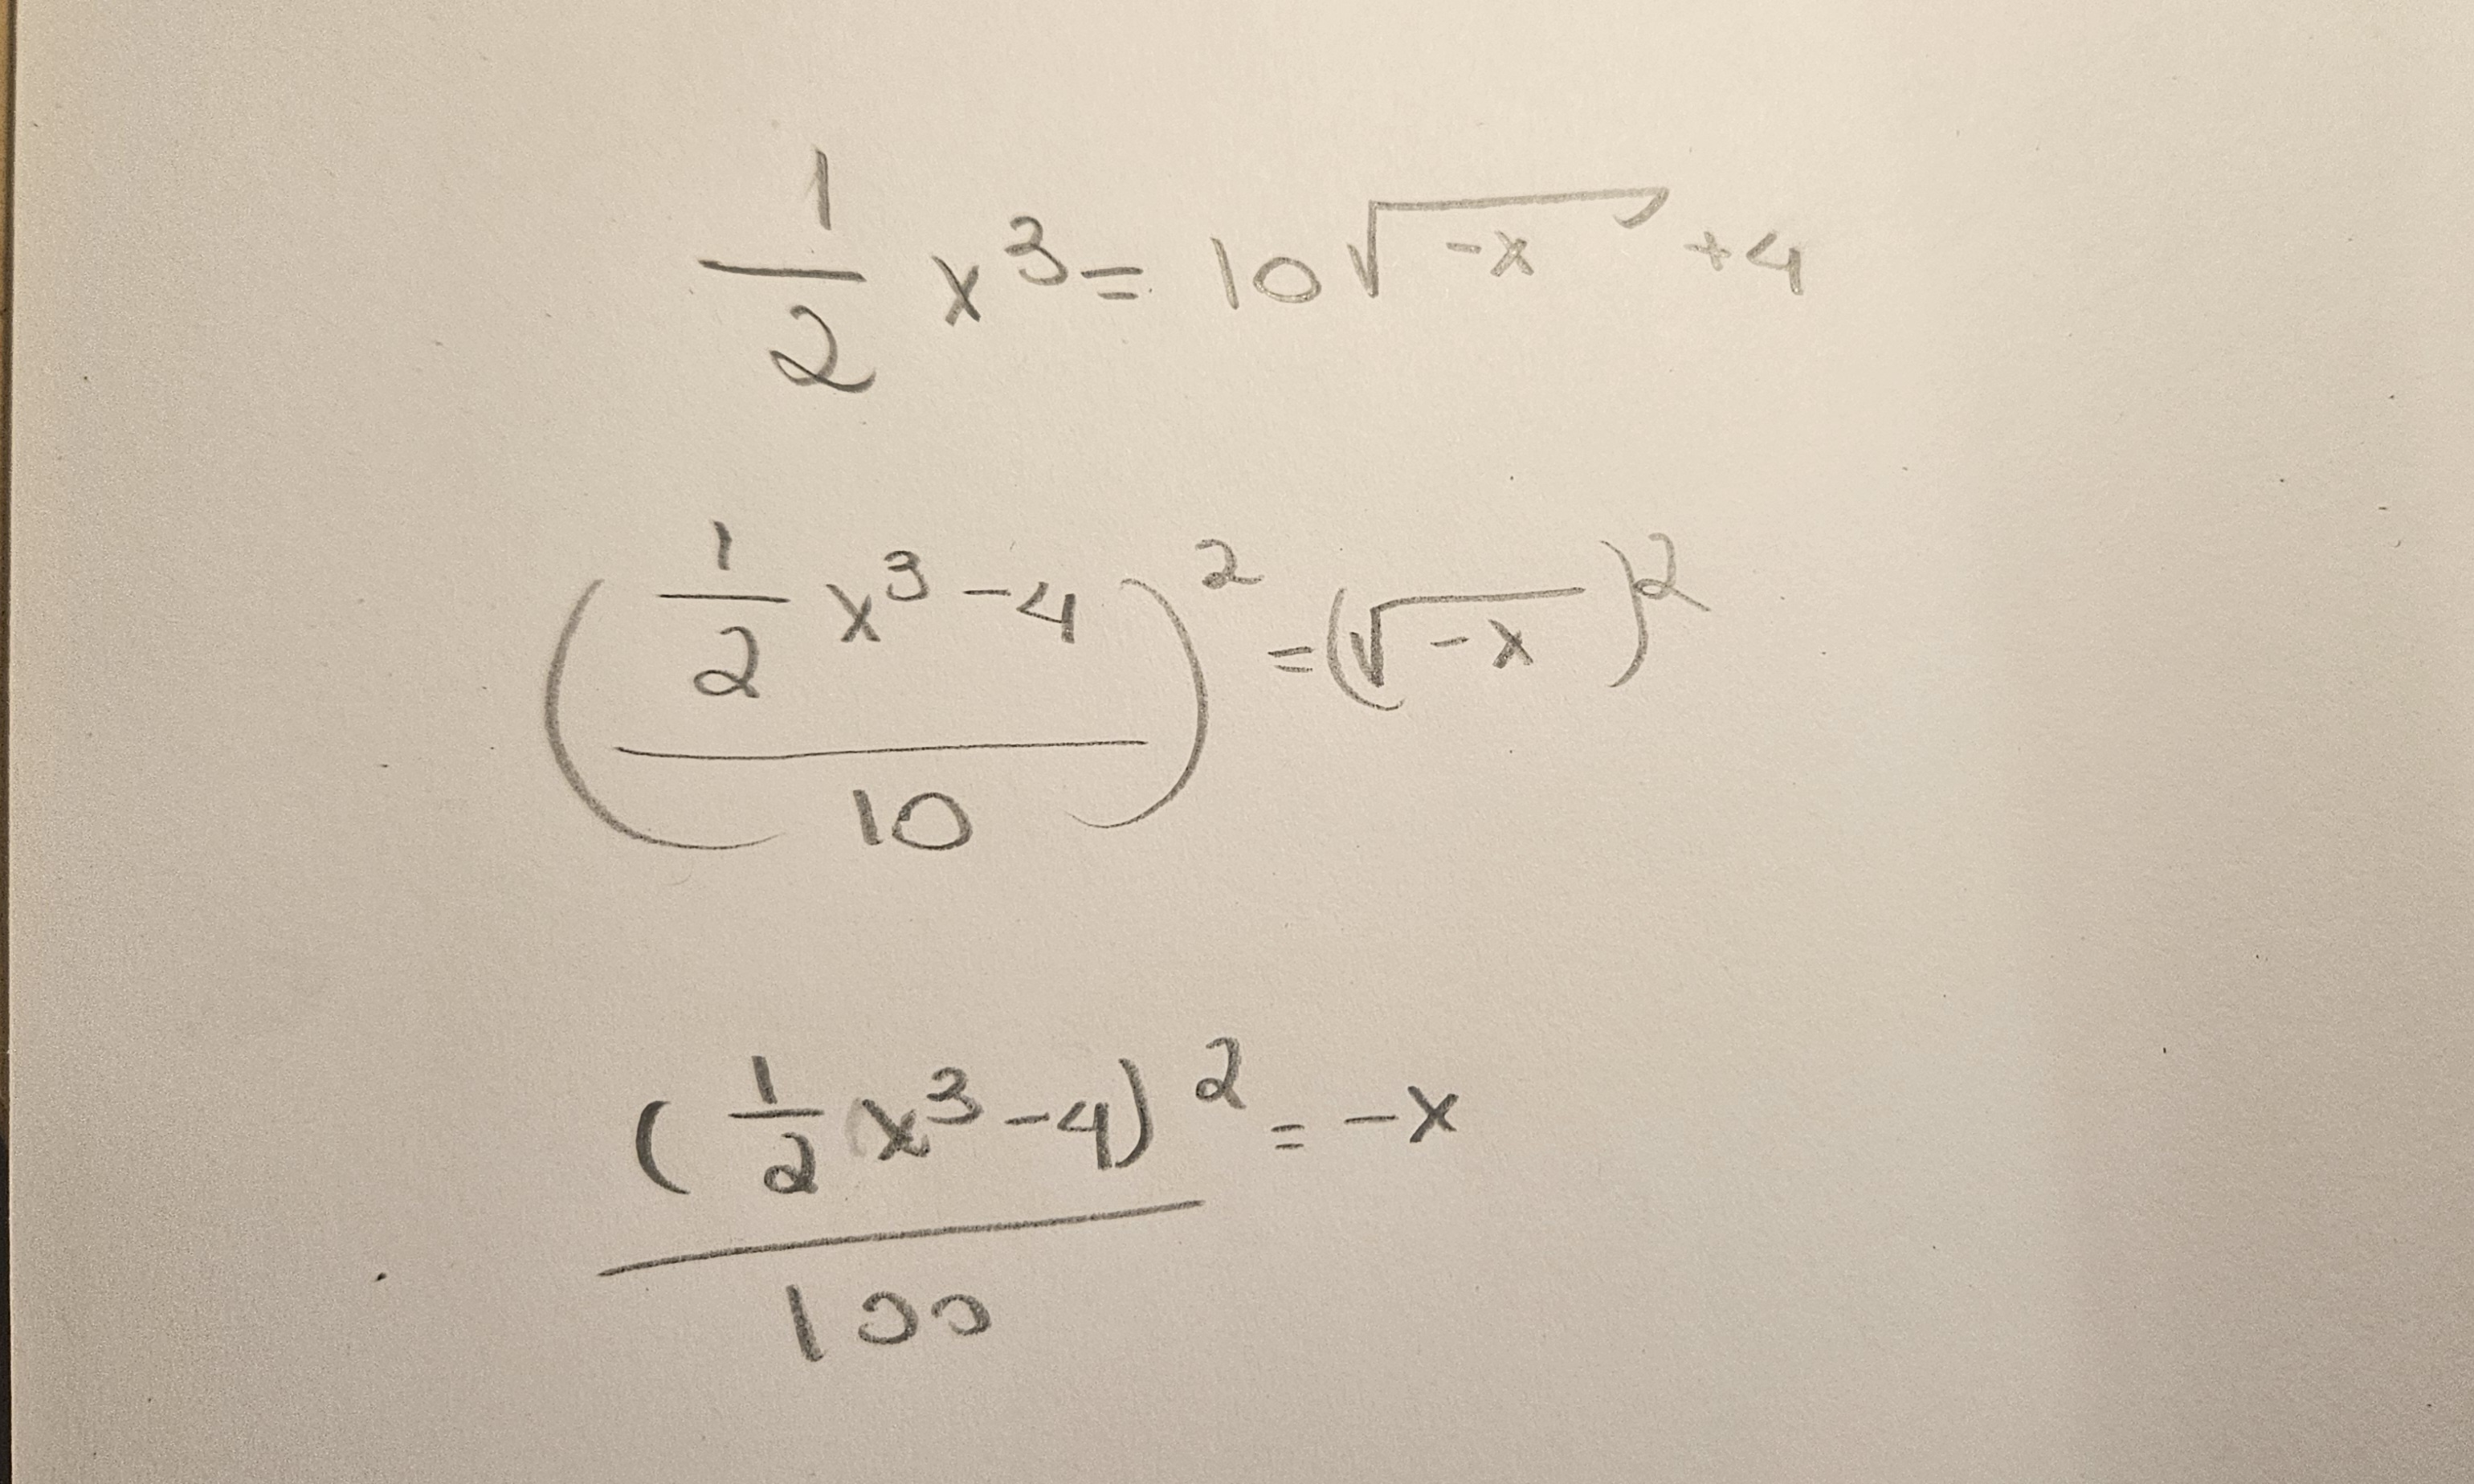 1/2 x³ = 10√(-x) + 4
((1/2 x³ - 4)/10)² = (√(-x))²
(1/2 x³ - 4)²/100 = -x